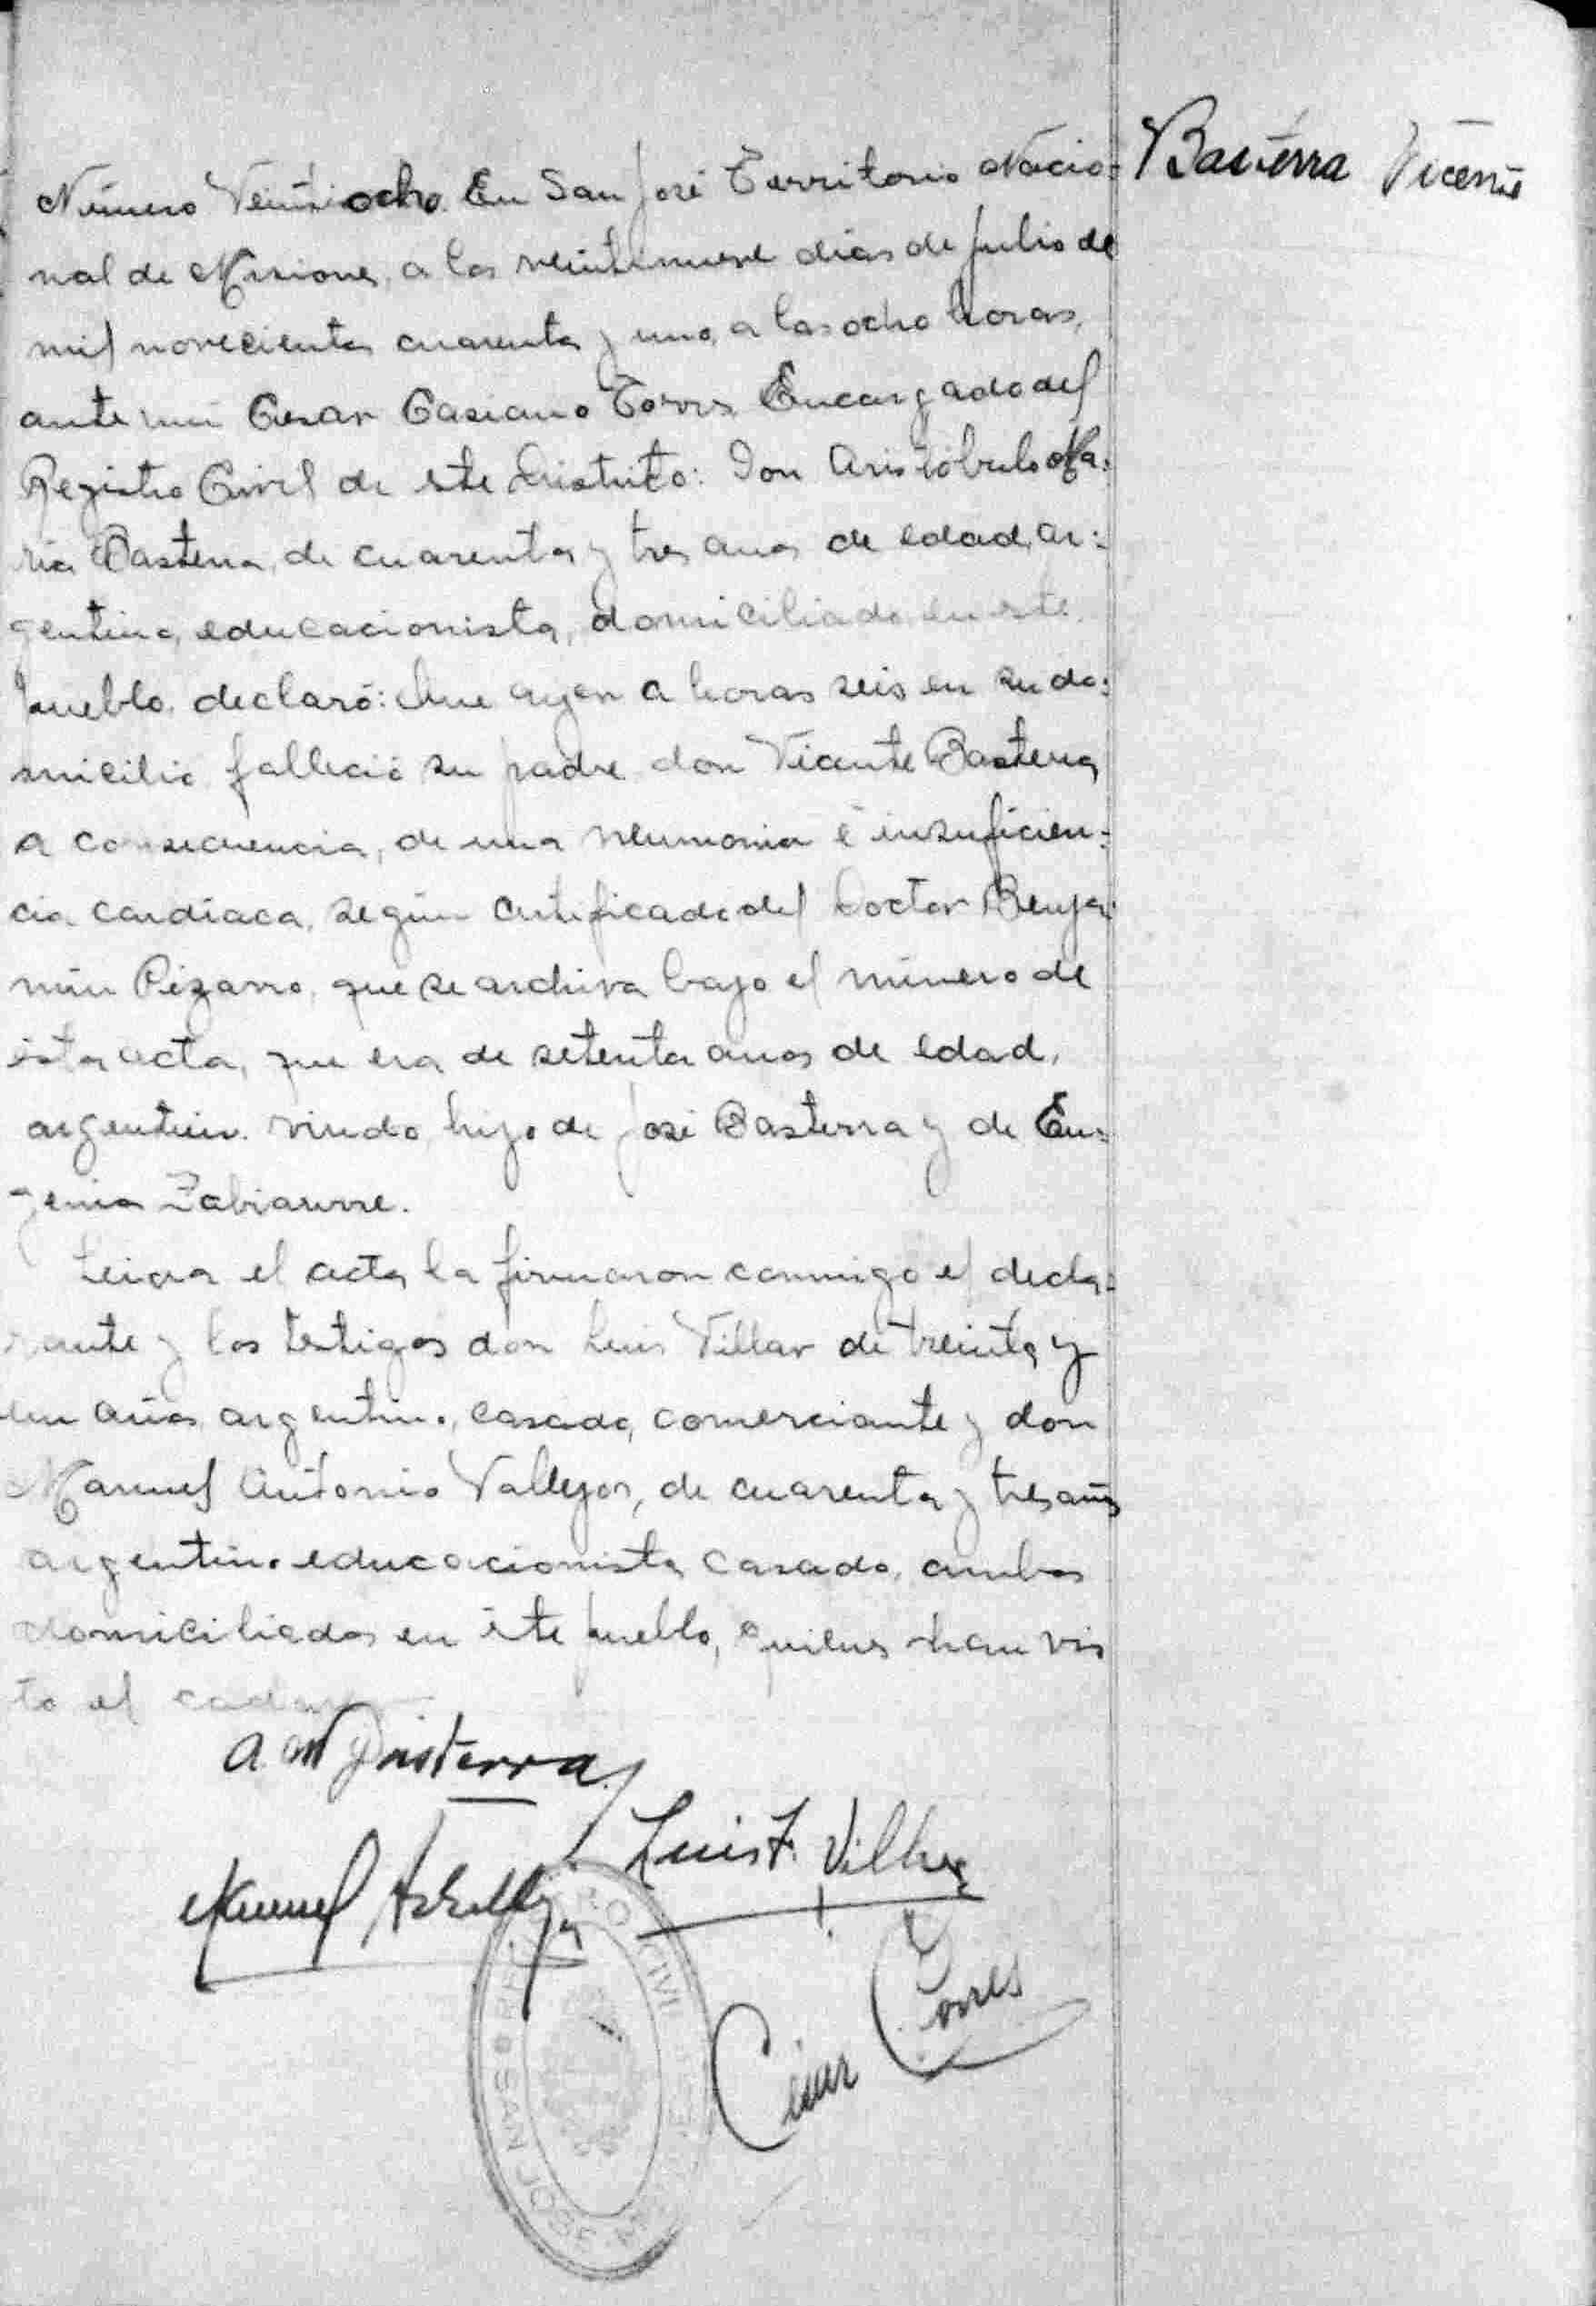 Basterra Vicente
Número Veintiocho. En San José Territorio Nacio=
nal de Misiones, a los veintinueve dias de Julio de
mil novecientos cuarenta y uno, a las ocho horas,
ante mi Cesar Casiano Torres Encargado del
Registro Civil de este Distrito: Don Aristóbulo Ma=
ria Basterra, de cuarenta y tres anos de edad, ar=
gentino, educacionista, domiciliado en este
pueblo, declaró: Que ayer a horas seis en su do=
micilio falleció su padre don Vicente Basterra
a consecuencia, de una neumonia é insuficien=
cia cardíaca, según certificado del Doctor Benja=
mín Pizarro, que se archiva bajo el número de
ésta acta, que era de setenta anos de edad,
argentino viudo, hijo de José Basterra y de Eu=
genia
Leida el acta la firmaron conmigo el decla=
rante y los testigos don Luis Villar de treinta y
un años, argentino, casado, comerciante y don
Manuel Antonio Vallejos, de cuarenta y tres años
argentino educacionista casado, ambos
domiciliados en éste pueblo, quienes han vis
to el
A. M Basterra
Luis F. Villar
Manuel
César Torres
REGISTRO CIVIL
SAN JOSE